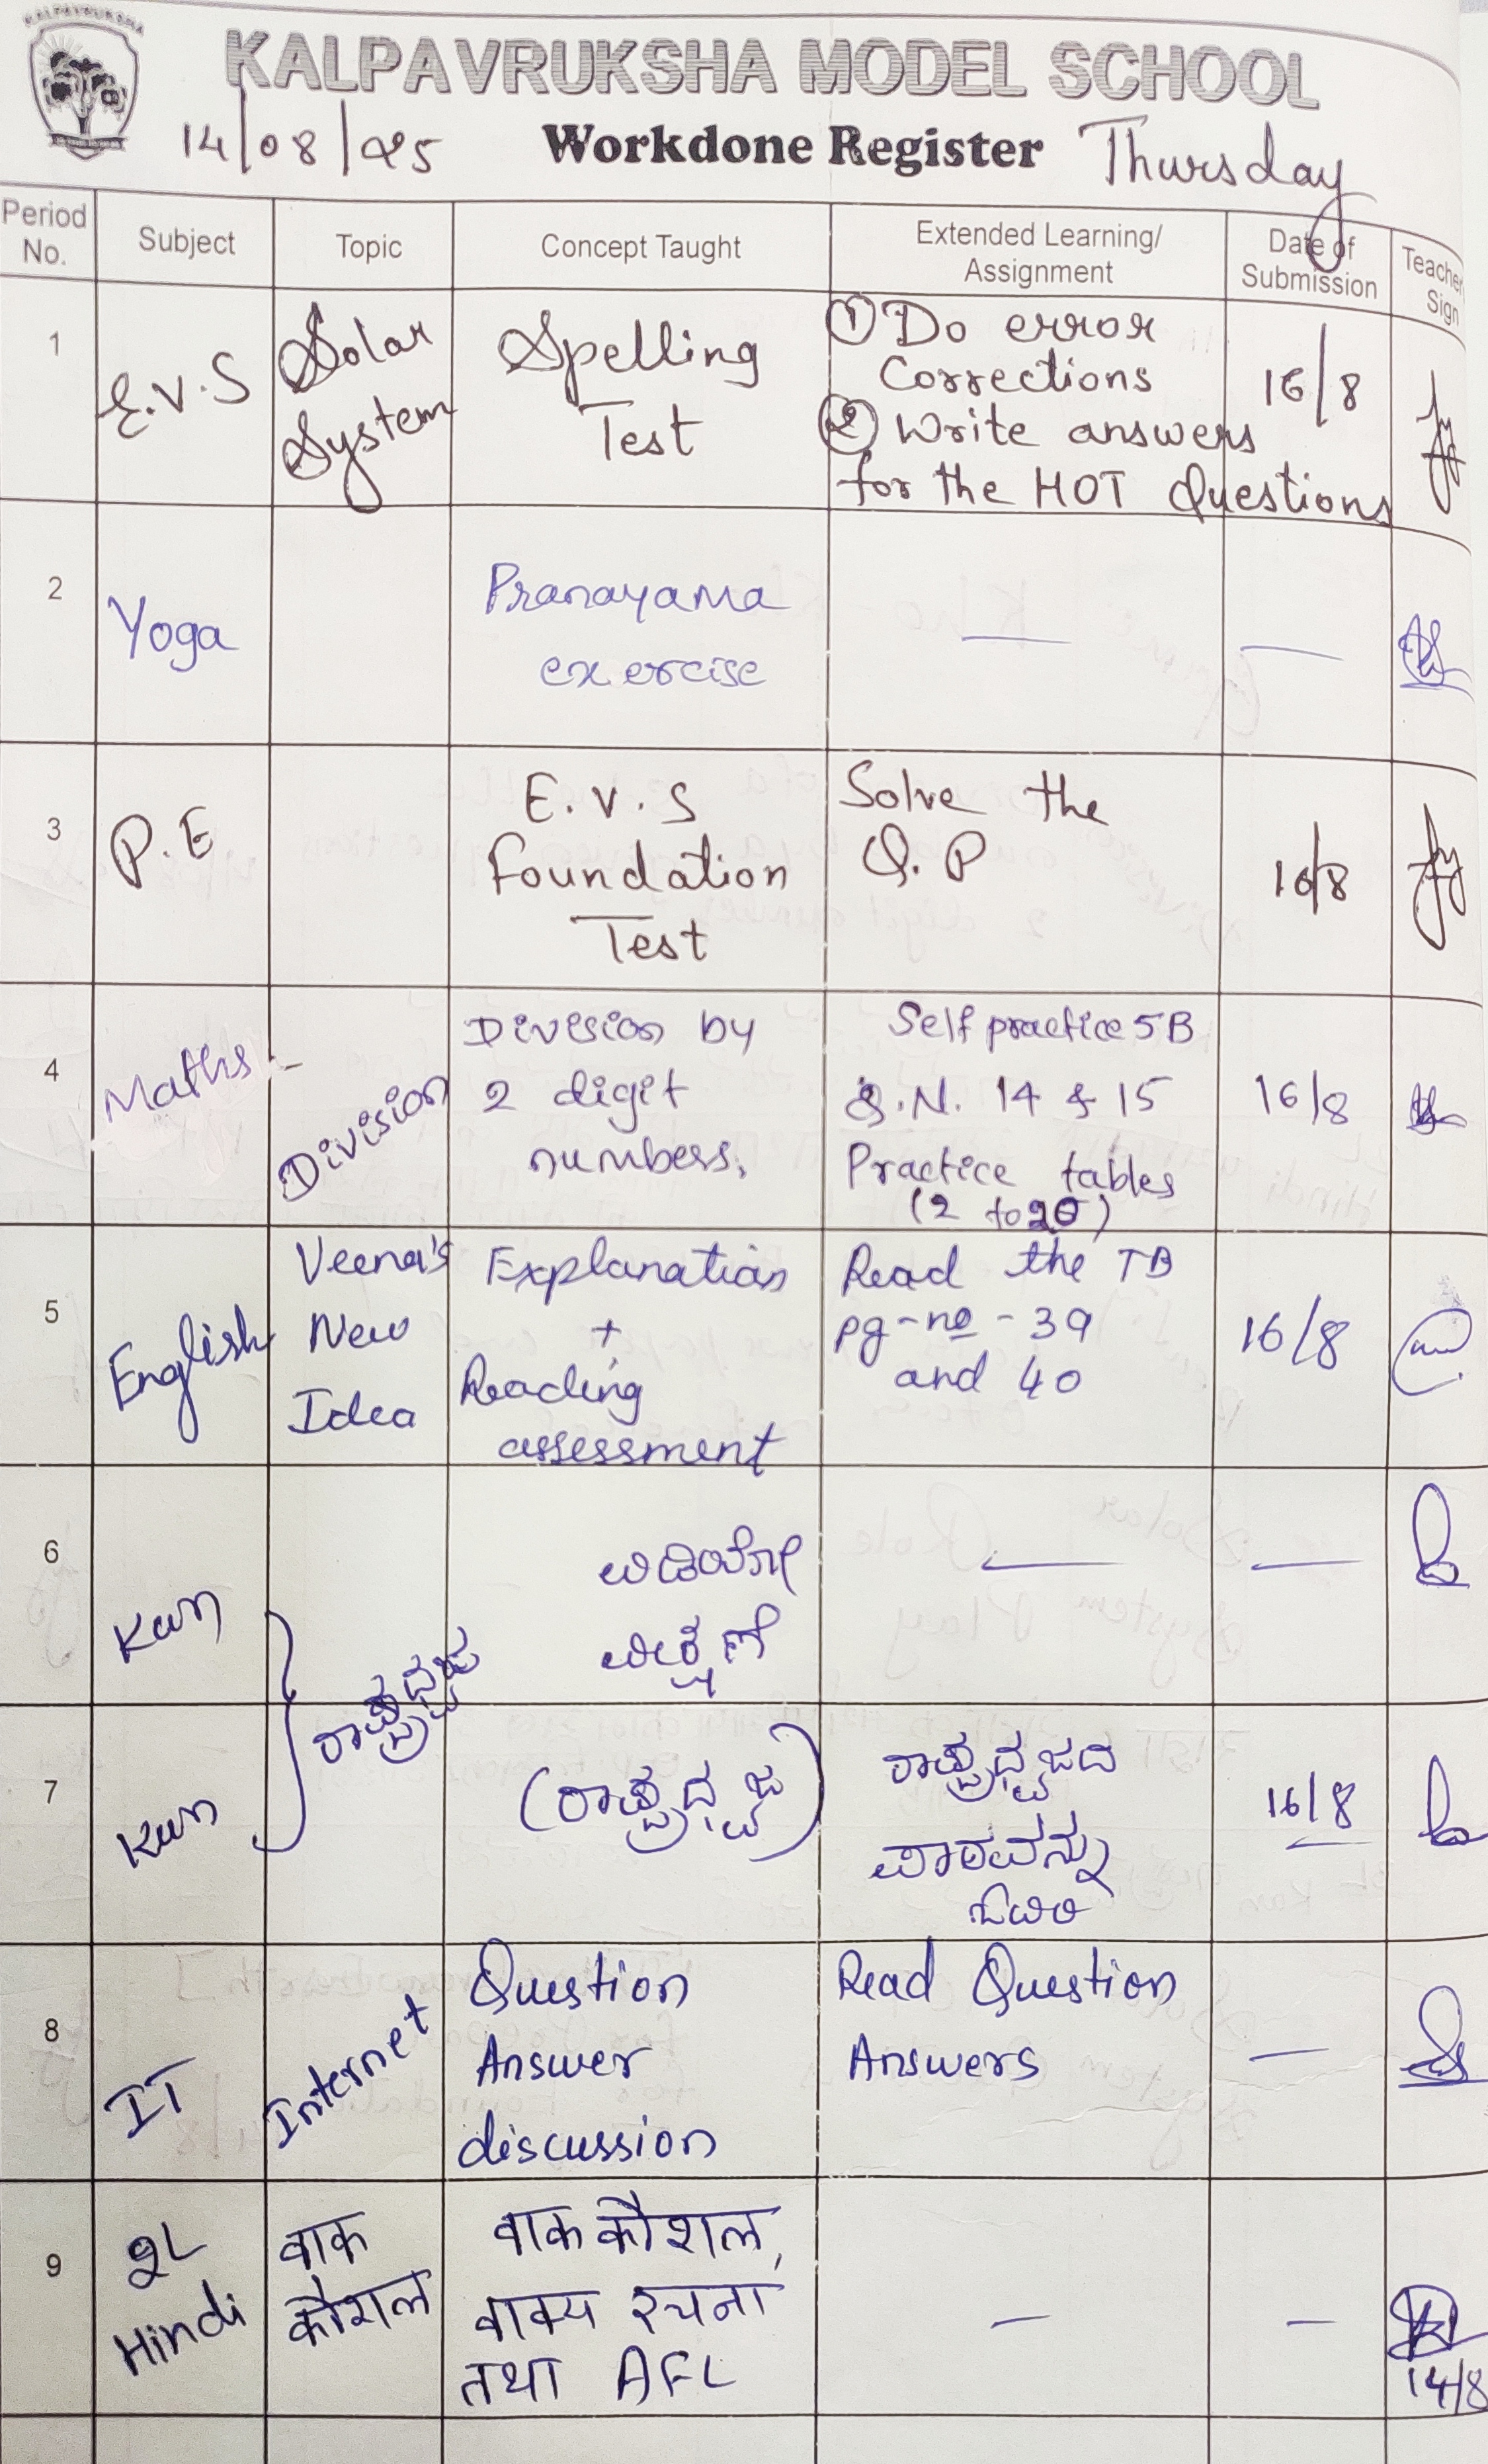 KALPAVRUKSHA
KALPAVRUKSHA MODEL SCHOOL
14/08/25 Workdone Register Thursday
Period No.
Subject
Topic
Concept Taught
Extended Learning/
Assignment
Date of
Submission
Teacher
Sign
1
E.V.S
Solar
System
Spelling
Test
① Do error
Corrections
② Write answers
for the HOT Questions
16/8
2
Yoga
Pranayama
exercise
—
—
3
P.E
E.V.S
Foundation
Test
Solve the
Q.P
16/8
4
Maths -
Division
Division by
2 digit
numbers.
Self practice 5B
Q.N. 14 & 15
Practice tables
(2 to 20)
16/8
5
English
Veena's
New
Idea
Explanation
+
Reading
assessment
Read the TB
pg-no - 39
and 40
16/8
6
Kan
ರಾಷ್ಟ್ರಧ್ವಜ
ವಿಡಿಯೋ
ವೀಕ್ಷಣೆ
—
—
7
Kan
(ರಾಷ್ಟ್ರಧ್ವಜ)
ರಾಷ್ಟ್ರಧ್ವಜದ
ಪಾಠವನ್ನು
ಓದಿರಿ
16/8
8
IT
Internet
Question
Answer
discussion
Read Question
Answers
—
9
2L
Hindi
वाक
कौशल
वाक कौशल,
वाक्य रचना
तथा AFL
—
—
14/8